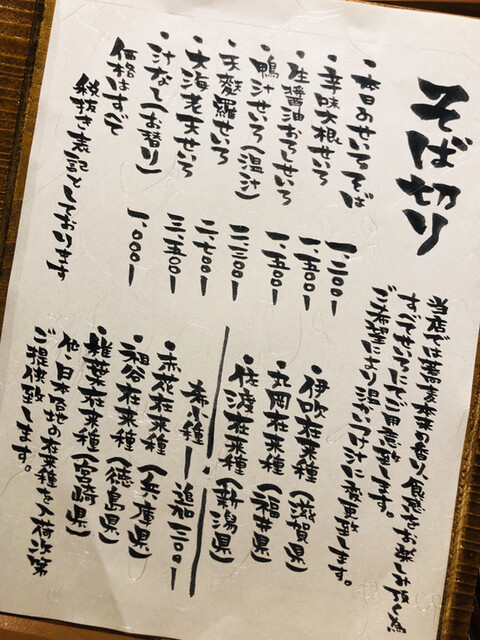 そば切り
当店では蕎麦本来の香り、食感をお楽しみ頂く為
すべてせいろにてご用意致します。
ご希望により温かいつけ汁に変更致します。
・本日のせいろそば 一、二〇〇ー
・辛味大根せいろ 一、五〇〇ー
・生醤油おでしせいろ 一、五〇〇ー
・鴨汁せいろ(温汁) 二、二〇〇ー
・天麩羅せいろ 二、七〇〇ー
・大海老天せいろ 三、五〇〇ー
・汁なし(お替り) 一、〇〇〇ー
価格はすべて
税抜き表記としております
・伊吹在来種(滋賀県)
・丸岡在来種(福井県)
・佐渡在来種(新潟県)
・希少種ー追加二〇〇ー
・赤花在来種(兵庫県)
・祖谷在来種(徳島県)
・椎葉在来種(宮崎県)
他、日本各地の在来種を入荷次第
ご提供致します。